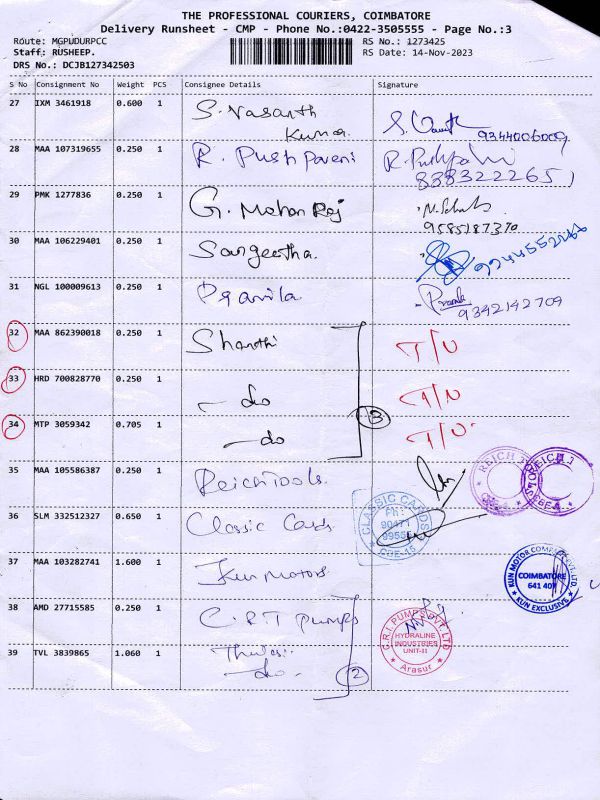 THE PROFESSIONAL COURIERS, COIMBATORE
Delivery Runsheet - CMP - Phone No.:0422-3505555 - Page No.:3
Route: MGPUDURPCC RS No.: 1273425
Staff: RUSHEEP. RS Date: 14-Nov-2023
DRS No.: DCJB127342503
S No Consignment No Weight PCS Consignee Details Signature
27 IXM 3461918 0.600 1 S. Vasanth
Kumar 9344006009
28 MAA 107319655 0.250 1 R. Pushpaveni R. Pushpa
8383222651
29 PMK 1277836 0.250 1 G. Mohan Raj
9585187370
30 MAA 106229401 0.250 1 Sangeetha.
31 NGL 100009613 0.250 1 Pramila
9342142709
32 MAA 862390018 0.250 1 Shanthi T/U
33 HRD 700828770 0.250 1 - do T/U
34 MTP 3059342 0.705 1 - do 3 T/U
35 MAA 105586387 0.250 1 Reich Tools. REICH T
36 SLM 332512327 0.650 1 Classic Cards CLASSIC CARDS
Ph:
CBE-15
37 MAA 103282741 1.600 1 Kun Motors KUN MOTOR COMPANY PVT. LTD.
COIMBATORE
KUN EXCLUSIVE
38 AMD 27715585 0.250 1 C.R.I Pumps C.R.I PUMPS PVT LTD
HYDRALINE
INDUSTRIES
UNIT-II
Arasur
39 TVL 3839865 1.060 1 - do. 2